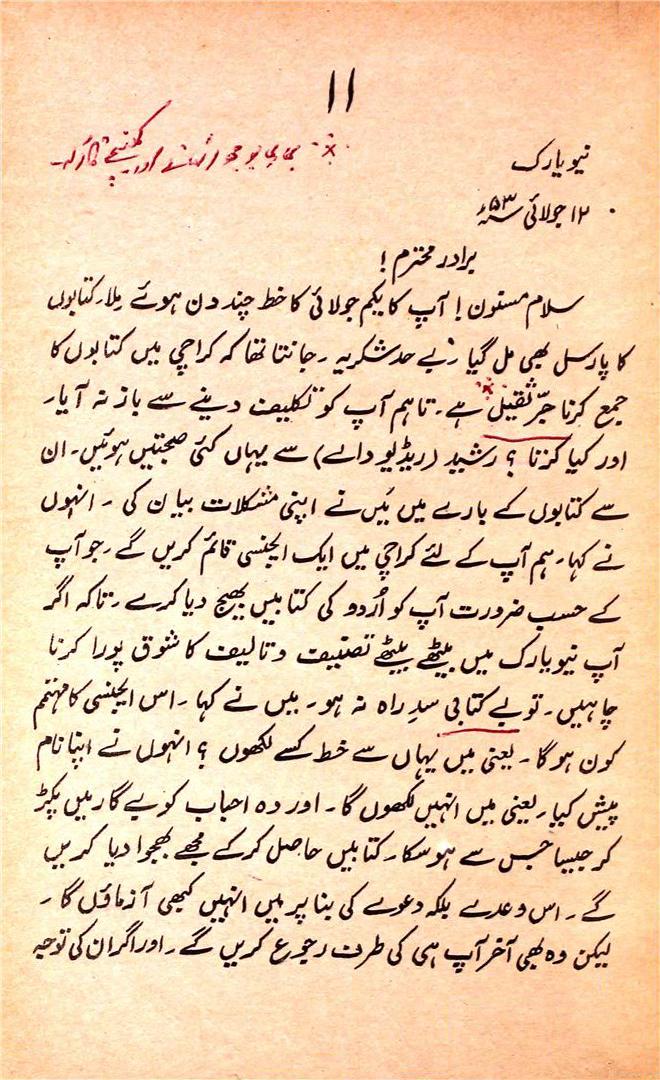 ۱۱
* بھاری بوجھ اُٹھانے اور کھینچنے کا آلہ۔
نیویارک
۱۲ جولائی ۵۳ سنہء
برادر محترم!
سلام مسنون! آپ کا یکم جولائی کا خط چند دن ہوئے ملا۔ کتابوں
کا پارسل بھی مل گیا۔ بے حد شکریہ۔ جانتا تھا کہ کراچی میں کتابوں کا
جمع کرنا جرِّ ثقیل* ہے۔ تاہم آپ کو تکلیف دینے سے باز نہ آیا۔
اور کیا کرتا؟ رشید (ریڈیو والے) سے یہاں کئی صحبتیں ہوئیں۔ ان
سے کتابوں کے بارے میں مَیں نے اپنی مشکلات بیان کی۔ انہوں
نے کہا۔ ہم آپ کے لئے کراچی میں ایک ایجنسی قائم کریں گے۔ جو آپ
کے حسبِ ضرورت آپ کو اُردو کی کتابیں بھیج دیا کرے۔ تاکہ اگر
آپ نیویارک میں بیٹھے بیٹھے تصنیف و تالیف کا شوق پورا کرنا
چاہیں۔ تو بے کتابی سدِ راہ نہ ہو۔ میں نے کہا۔ اس ایجنسی کا مہتمم
کون ہو گا۔ یعنی میں یہاں سے خط کسے لکھوں؟ انہوں نے اپنا نام
پیش کیا۔ یعنی میں انہیں لکھوں گا۔ اور وہ احباب کو بے گار میں پکڑ
کر جیسا جس سے ہو سکا۔ کتابیں حاصل کرکے مجھے بھجوا دیا کریں
گے۔ اس وعدے بلکہ دعوے کی بنا پر میں انہیں کبھی آزماؤں گا۔
لیکن وہ بھی آخر آپ ہی کی طرف رجوع کریں گے۔ اور اگر ان کی توجہ